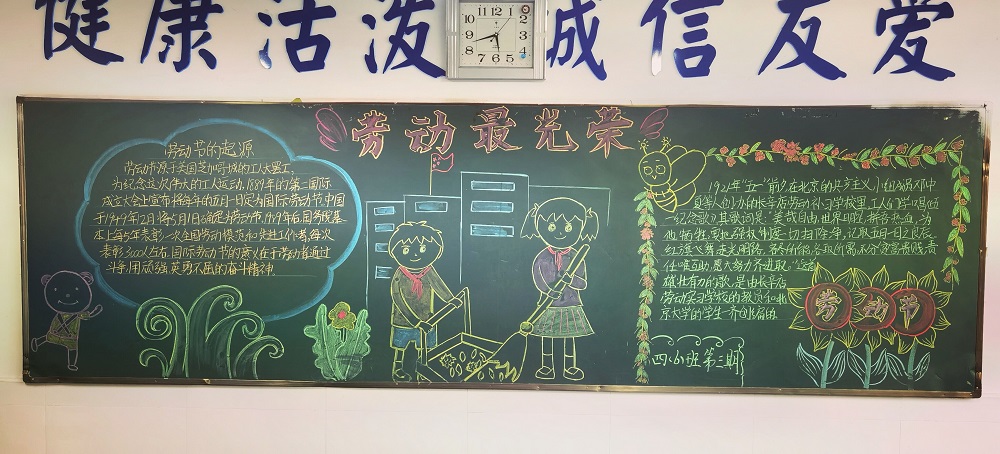 健康活泼 诚信友爱
劳动最光荣
劳动节的起源
劳动节源于美国芝加哥城的工人大罢工,
为纪念这次伟大的工人运动,1889年的第二国际
成立大会上宣布将每年的五月一日定为国际劳动节,中国
于1949年12月将5月1日确定为劳动节.1989年后,国务院基
本上每5年表彰一次全国劳动模范和先进工作者,每次
表彰3000人左右.国际劳动节的意义在于劳动者通过
斗争,用顽强、英勇不屈的奋斗精神
1921年“五一”前夕在北京的共产主义小组成员邓中
夏等人创办的长辛店劳动补习学校里,工人们学唱《五一
纪念歌》.其歌词是:“美哉自由,世界明星,拼吾热血,为
他牺牲,要把强权制度一切扫除净,记取五月一日之良辰.
红旗飞舞,走光明路,各尽所能,各取所需,不分贫富贵贱,责
任唯互助,愿大家努力齐进取.”这首
雄壮有力的歌,是由长辛店
劳动实习学校的教员和北
京大学的学生一齐创编的.
劳动节
四·(6)班 第三期